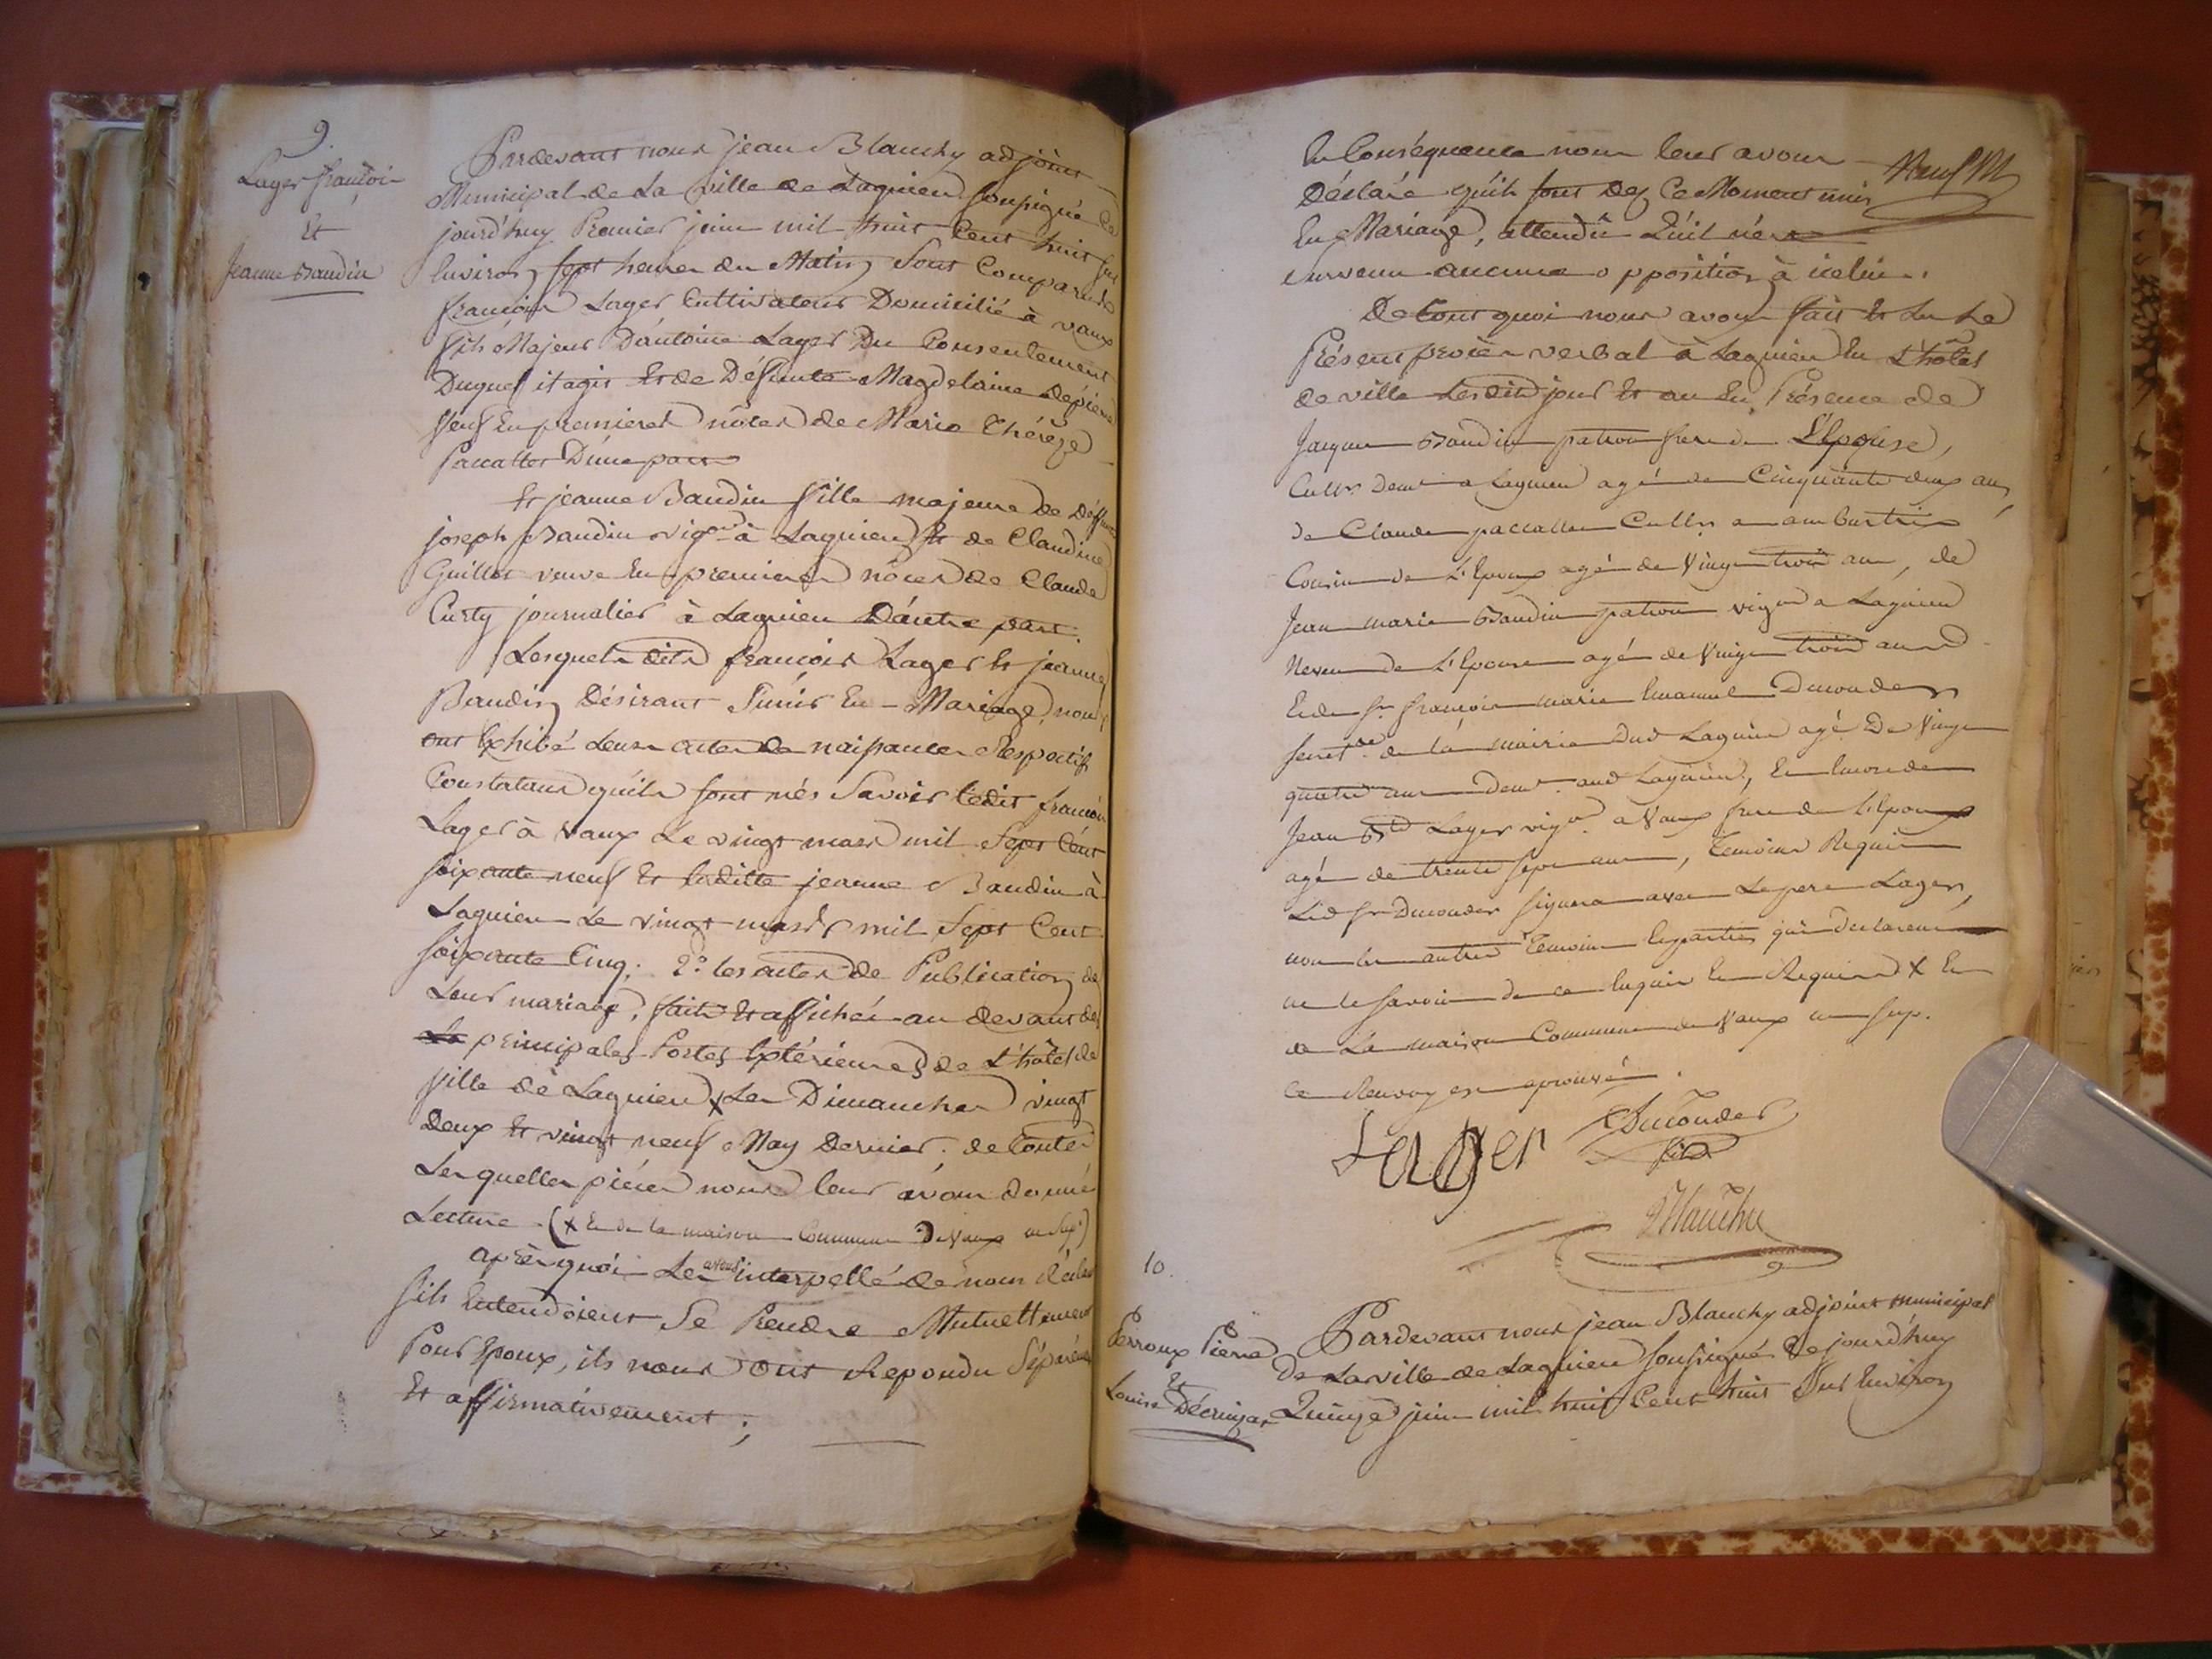 9.
Lager françois
Et
Jeanne Baudin
Pardevant nous jean Blanchy adjoint
Municipal de La ville de Lagnieu soussigné Ce
jourd'huy Premier juin mil huit Cent huit sur
Environ sept heures du Matin Sont Comparus
françois Lager Cultivateur Domicilié à vaux
fils Majeur D'antoine Lager Du Consentement
Duquel il agit Et de Défunte Magdelaine depierre
veuf En premieres nôces de Marie Thérèze
Paccallet D'une part
Et jeanne Baudin fille majeure de Deffunt
joseph Baudin vign à Lagnieu Et de Claudine
Guillot veuve En premieres nôces de Claude
Curty journalier à Lagnieu D'autre part.
Lesquels dits françois Lager Et jeanne
Baudin Désirant S'unir En Mariage, nous
ont Exhibé Leurs actes de naissances Respectifs
Constatant qu'ils sont nés Savoir Ledit françois
Lager à Vaux Le vingt mars mil Sept Cent
soixante neuf Et laditte jeanne Baudin à
Lagnieu Le vingt mars mil Sept Cent
soixante Cinq; 2° les actes de Publication de
Leur mariage, faits Et affichés au devant des
principales Portes Extérieures de L'hôtel de
Ville de Lagnieu X Les Dimanches vingt
Deux Et vingt neuf May Dernier; de toutes
Lesquelles piéces nous leur avons donné
Lecture (X Et de la maison Commune De Vaux en sup.)
après quoi Les avons interpellé de nous déclarer
s'ils Entendoient Se Prendre Mutuellement
Pour Epoux, ils nous Ont Repondu Séparément
Et affirmativement;
En Conséquence nous leur avons
Déclaré qu'ils sont Dez Ce Moment unis
En Mariage, attendu Qu'il n'est
Survenu aucune opposition à icelui.
De tout quoi nous avons fait Et Lu Le
Présent procès verbal à Lagnieu En L'hôtel
de ville Lesdits jour Et an En Présence de
Jacques Baudin patron frere de L'Epouse,
Cultr demt a Lagnieu agé de Cinquante deux ans,
de Claude paccallet Cultr a ambutrix
Cousin de L'Epoux agé de Vingt trois ans, de
Jean marie Baudin patron vign a Lagnieu
Neveu de L'Epouse agé de Vingt trois ans
Et de Sr françois marie Emanuel Ducouder
secret.re de la mairie Dud Lagnieu agé De Vingt
quatre ans demt aud Lagnieu, Et Encore de
Jean Bte Lager vign a Vaux frere de l'Epoux
agé de trente sept ans, Temoins Requis
Led Sr Ducouder signera avec Le pere Lager,
non les autres Temoins Et parties qui declarent
ne le savoir de ce Enquis Et Requis X Et
de La maison Commune de Vaux en sup.
ce Renvoy est aprouvé.
Lager Ducouder
fils
Blanchy
10.
Perroux Pierre
Et
Louise Décrinjat
Pardevant nous jean Blanchy adjoint municipal
De La ville de Lagnieu soussigné Ce jourd'huy
Quinze juin mil huit Cent huit Sur Environ